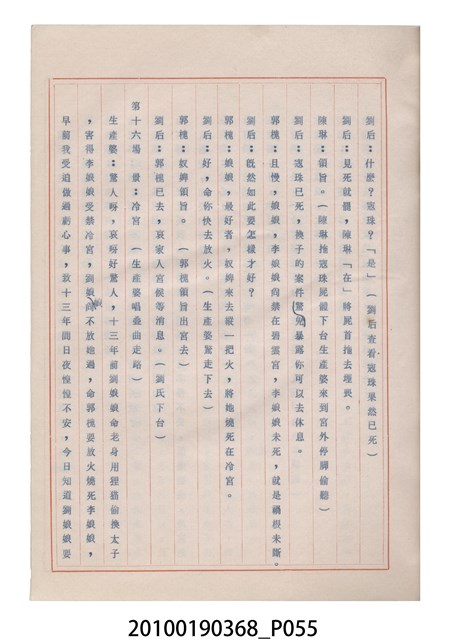 劉后：什麼？寇珠？「是」（劉后查看寇珠果然已死）
劉后：見死就僵，陳琳「在」將屍首拖去埋喪。
陳琳：領旨。（陳琳拖寇珠屍體下台生產婆來到宮外停脚偷聽）
劉后：寇珠已死，換子的案件暴露你可以去休息。
郭槐：且慢，娘娘，李娘娘尚禁在碧雲宮，李娘娘未死，就是禍根未斷。
劉后：既然如此要怎樣才好？
郭槐：娘娘，最好者，奴婢來去縱一把火，將她燒死在冷宮。
劉后：好，命你快去放火。（生產婆驚走下去）
郭槐：奴婢領旨。（郭槐領旨出宮去）
劉后：郭槐已去，哀家入宮候等消息。（劉氏下台）
第十六場　景：冷宮（生產婆唱叠曲走路）
生產婆：驚人呀，哀呀好驚人，十三年前劉娘娘命老身用狸猫偷換太子
，害得李娘娘受禁冷宮，劉娘娘不放她過，命郭槐要放火燒死李娘娘，
早前我受迫做過虧心事，致十三年間日夜惶惶不安，今日知道劉娘娘要
20100190368_P055